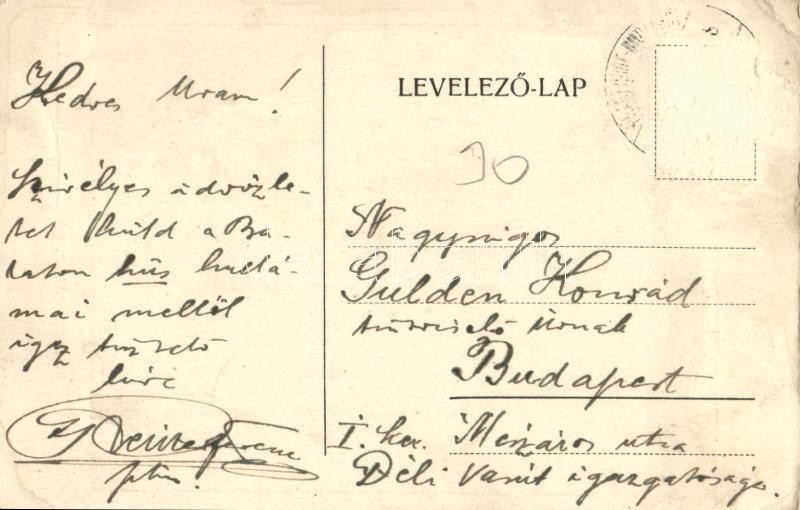 Kedves Uram!
Szivélyes üdvözle-
tet küld a Ba-
laton hüs hullá-
mai mellől
igaz tisztelő
hive
Ferenc
LEVELEZŐ-LAP
30
Nagyságos
Gulden Konrád
Úrnak
Budapest
I. ker. Mészáros utca
Déli Vasút igazgatósága.